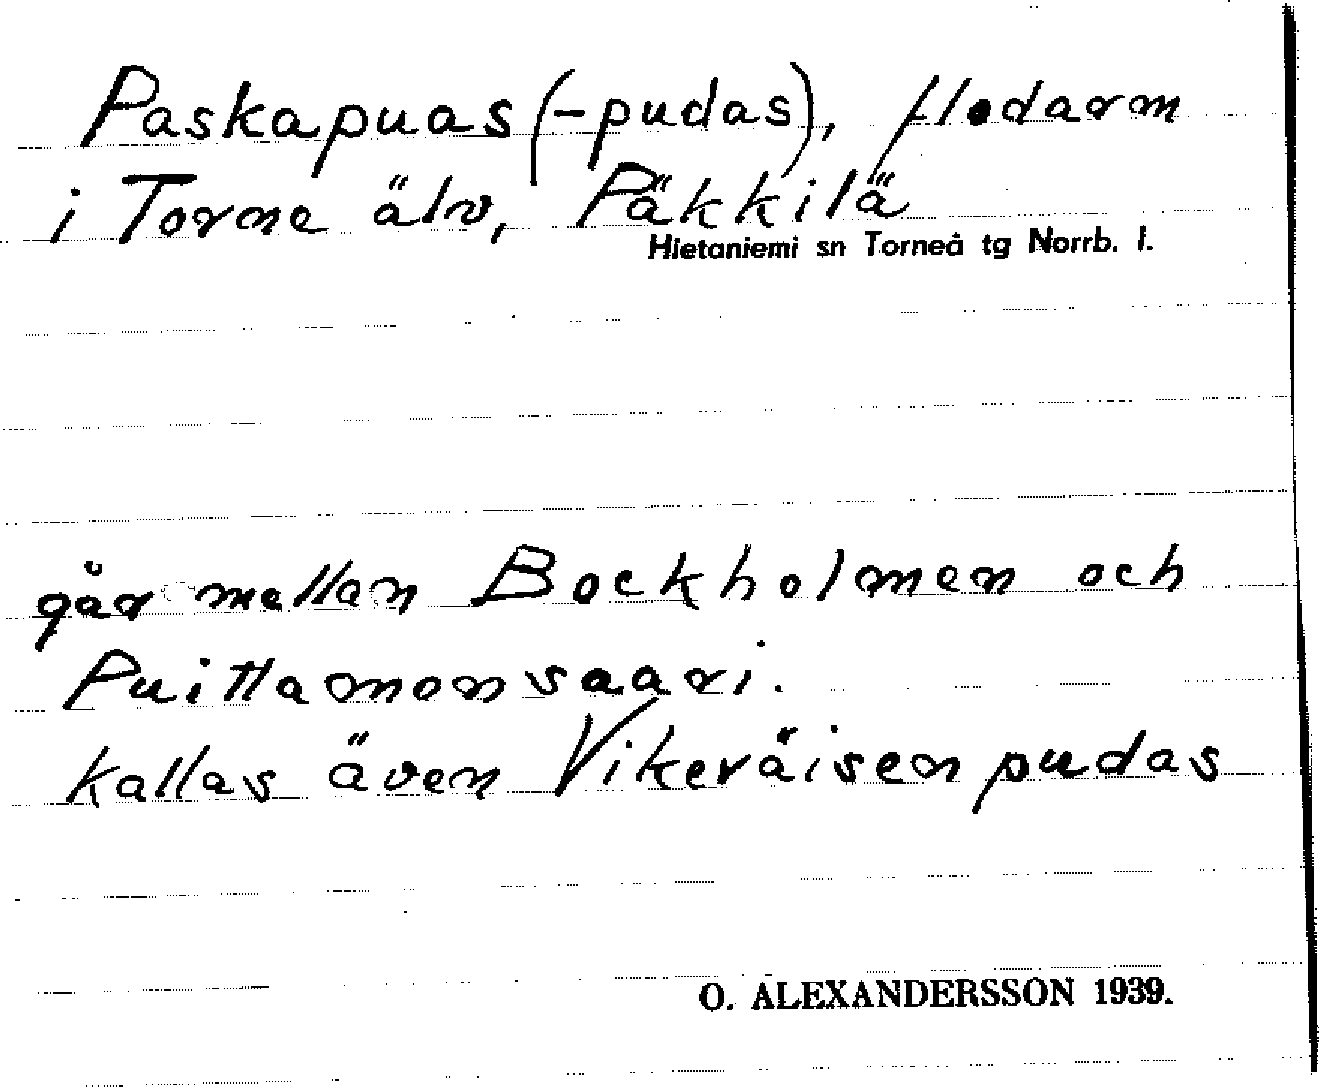 Paskapuas (-pudas), flodarm
i Torne älv, Päkkilä
Hietaniemi sn Torneå tg Norrb. l.
går mellan Bockholmen och
Puittamonsaari.
kallas även Vikeräisenpudas
O. ALEXANDERSSON 1939.